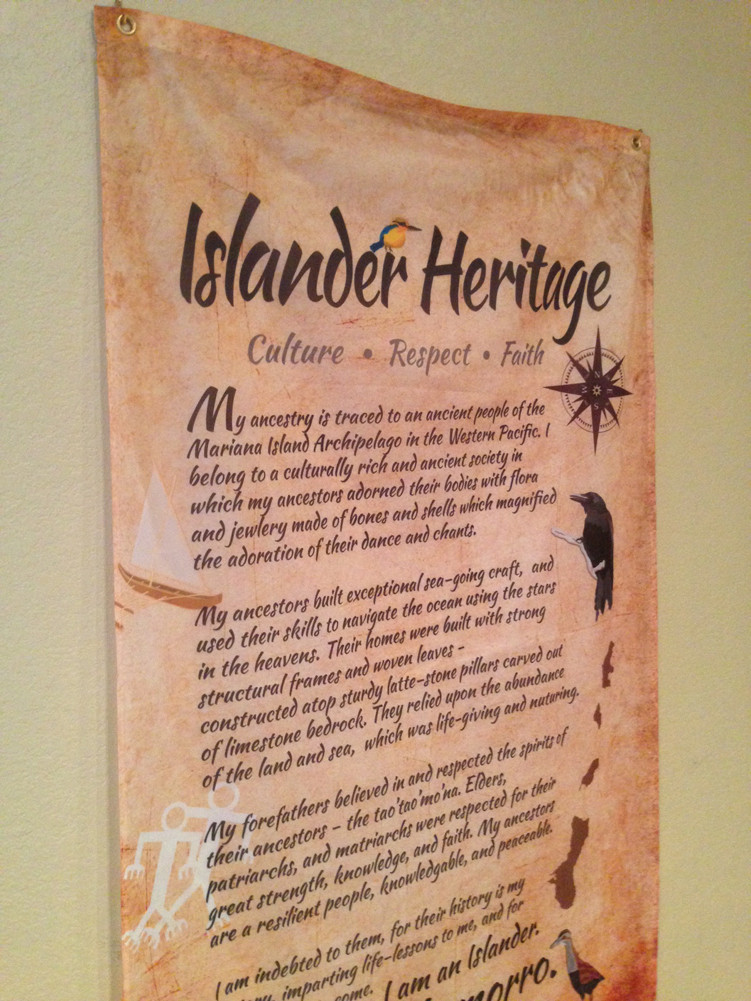 Islander Heritage
Culture • Respect • Faith
My ancestry is traced to an ancient people of the
Mariana Island Archipelago in the Western Pacific. I
belong to a culturally rich and ancient society in
which my ancestors adorned their bodies with flora
and jewlery made of bones and shells which magnified
the adoration of their dance and chants.
My ancestors built exceptional sea-going craft, and
used their skills to navigate the ocean using the stars
in the heavens. Their homes were built with strong
structural frames and woven leaves –
constructed atop sturdy latte-stone pillars carved out
of limestone bedrock. They relied upon the abundance
of the land and sea, which was life-giving and nuturing.
My forefathers believed in and respected the spirits of
their ancestors – the tao'tao'mo'na. Elders,
patriarchs, and matriarchs were respected for their
great strength, knowledge, and faith. My ancestors
are a resilient people, knowledgable, and peaceable.
I am indebted to them, for their history is my
imparting life-lessons to me, and for
come. I am an Islander.